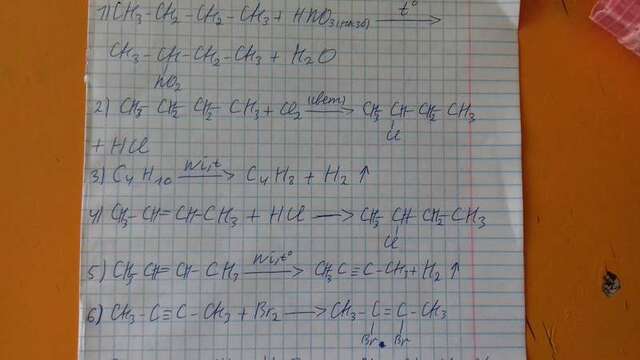 1) CH3-CH2-CH2-CH3 + HNO3(разб) t°→
CH3-CH-CH2-CH3 + H2O
NO2
2) CH3-CH2-CH2-CH3 + Cl2 (свет)→ CH3-CH-CH2-CH3
Cl
+ HCl
3) C4H10 Ni,t→ C4H8 + H2↑
4) CH3-CH=CH-CH3 + HCl → CH3-CH-CH2-CH3
Cl
5) CH3-CH=CH-CH3 Ni,t°→ CH3C≡C-CH3+H2↑
6) CH3-C≡C-CH3 + Br2 → CH3-C=C-CH3
Br Br